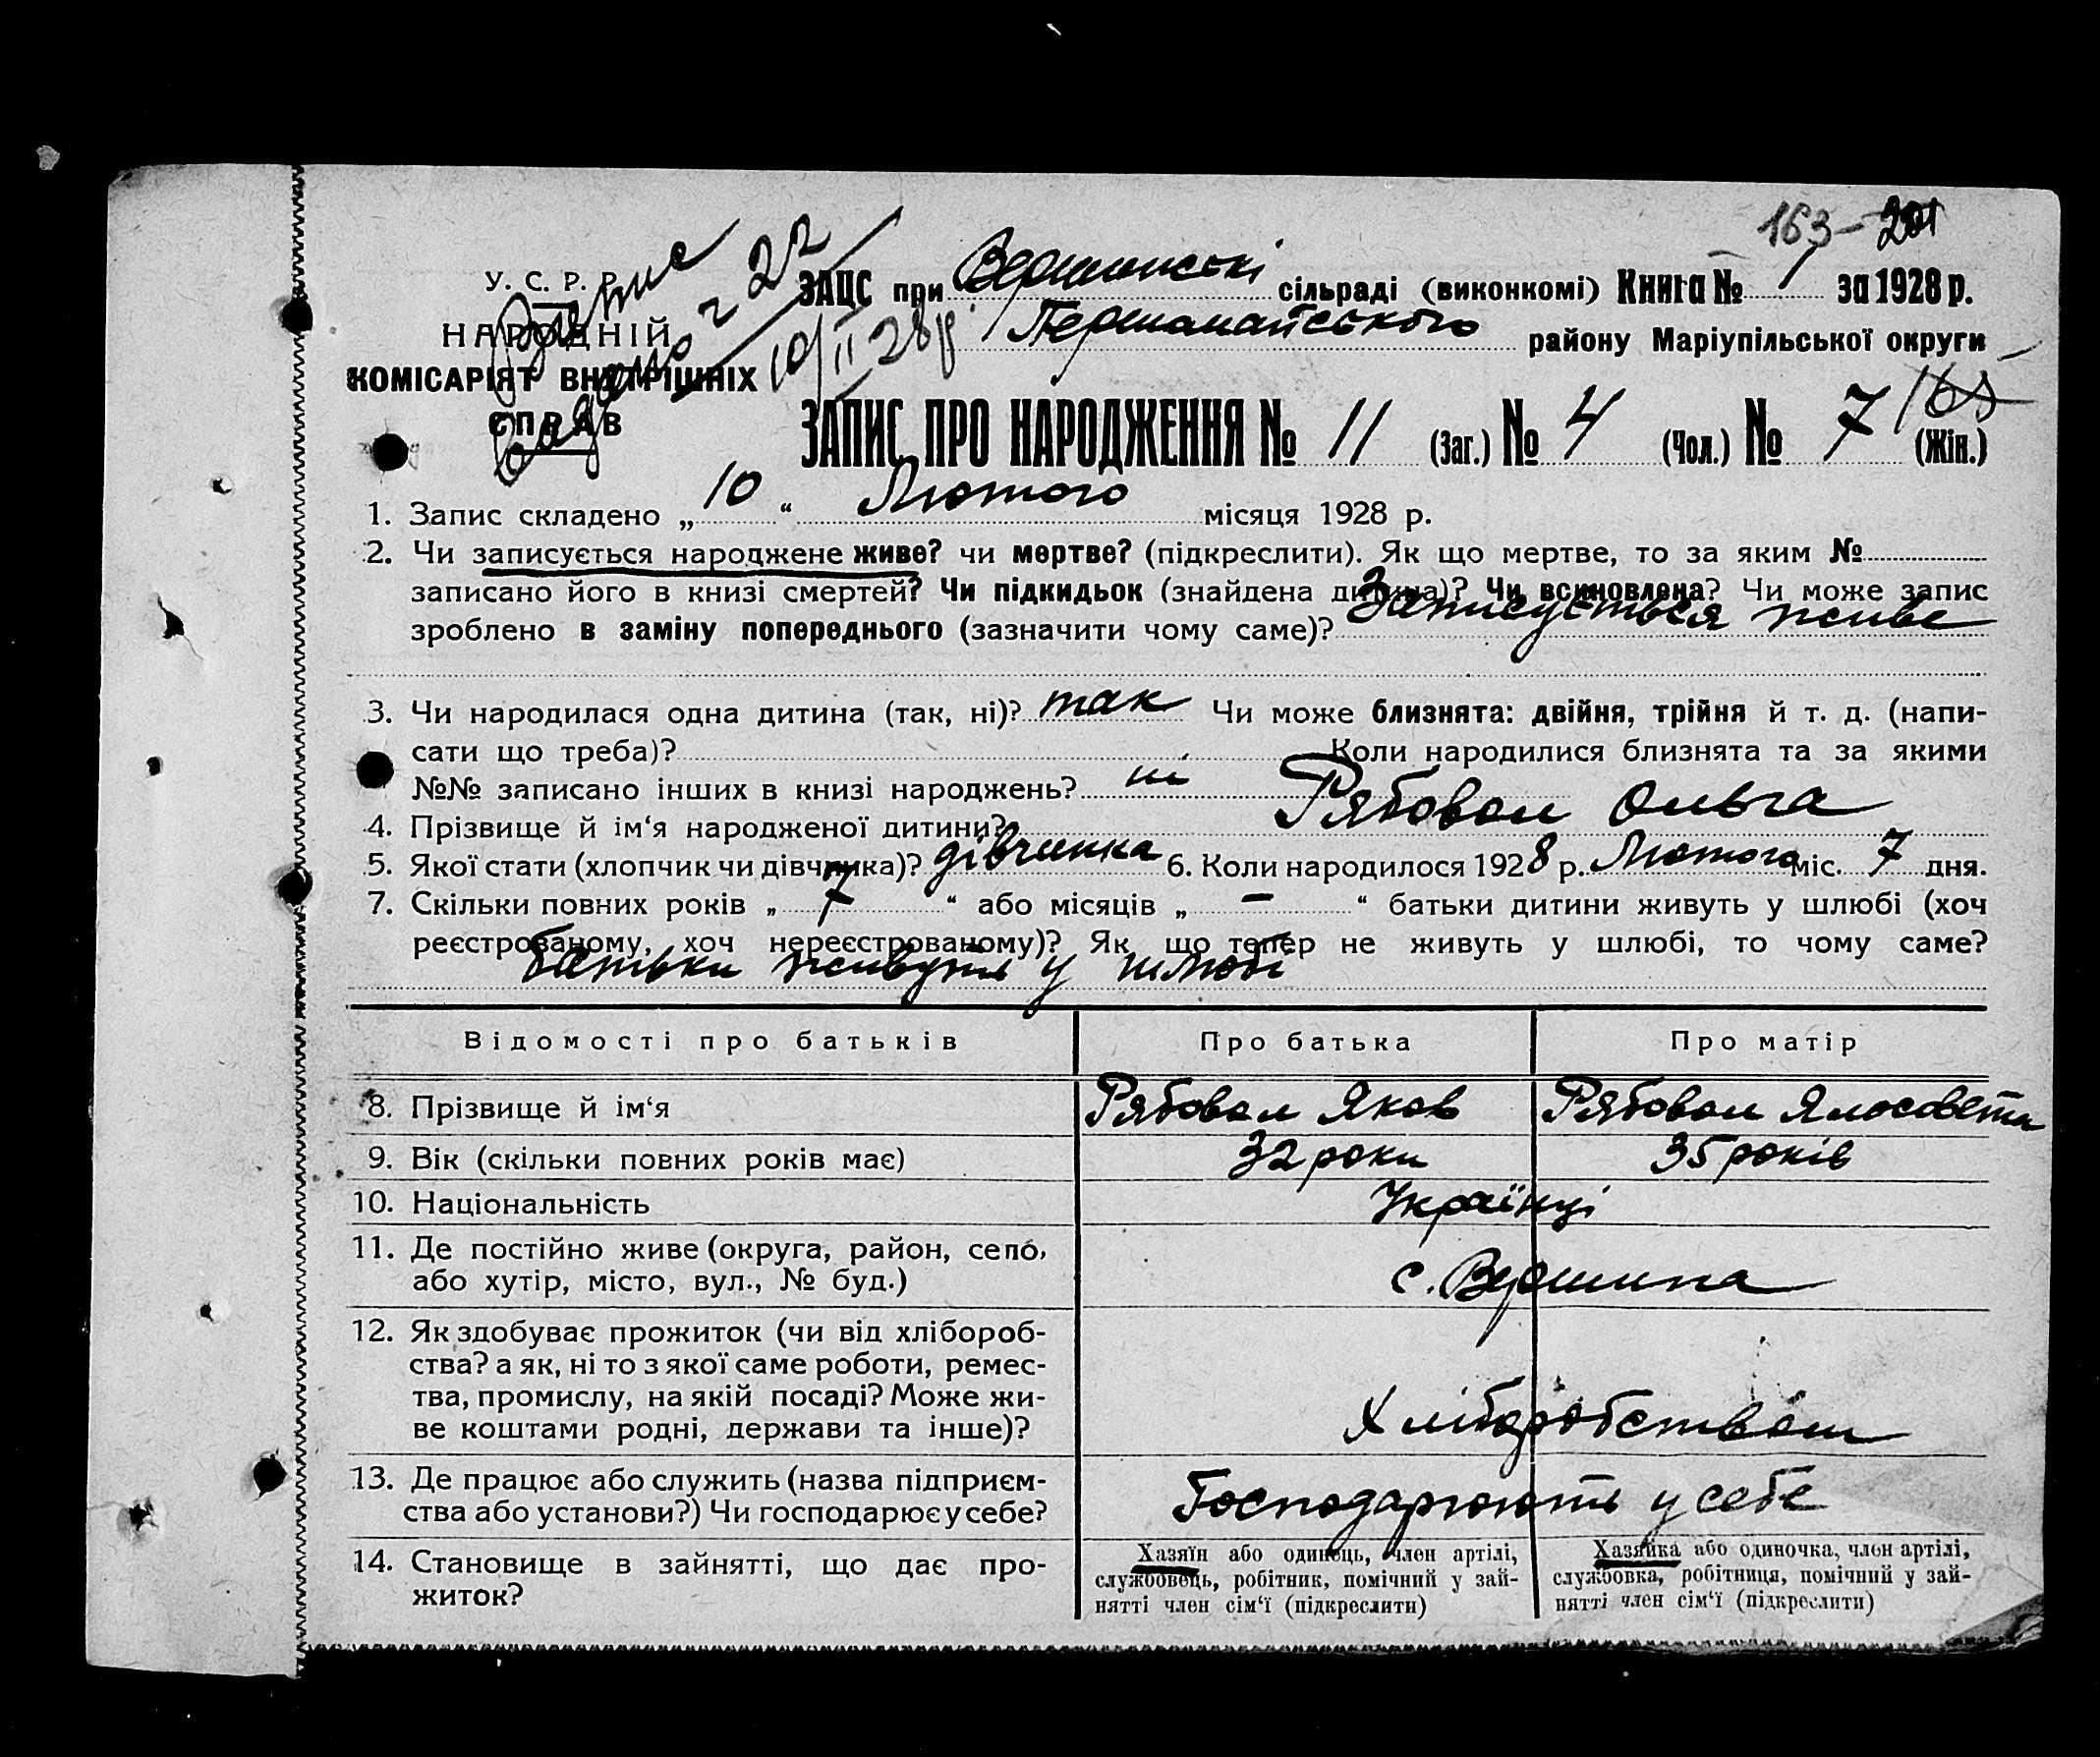 163 - 201
У. С. Р. Р.
НАРОДНІЙ
КОМІСАРІЯТ ВНУТРІШНІХ
СПРАВ
Випис
видано 2 22
10/II 28 р.
ЗАЦС при Вершинські сільраді (виконкомі) Книга № 1 за 1928 р.
Першомайського району Маріупільської округи
165
ЗАПИС ПРО НАРОДЖЕННЯ № 11 (Заг.) № 4 (Чол.) № 7 (Жін.)
1. Запис складено „ 10 “ Лютого місяця 1928 р.
2. Чи записується народжене живе? чи мертве? (підкреслити). Як що мертве, то за яким №
записано його в книзі смертей? Чи підкидьок (знайдена дитина)? Чи всиновлена? Чи може запис
зроблено в заміну попереднього (зазначити чому саме)? Записується живе
3. Чи народилася одна дитина (так, ні)? так Чи може близнята: двійня, трійня й т. д. (напи-
сати що треба)? Коли народилися близнята та за якими
№№ записано інших в книзі народжень? ні
4. Прізвище й ім‘я народженої дитини? Рябовол Ольга
5. Якої стати (хлопчик чи дівчинка)? дівчинка 6. Коли народилося 1928 р. Лютого міс. 7 дня.
7. Скільки повних років „ 7 “ або місяців „ – “ батьки дитини живуть у шлюбі (хоч
реєстрованому, хоч нереєстрованому)? Як що тепер не живуть у шлюбі, то чому саме?
батьки живуть у шлюбі
Відомості про батьків Про батька Про матір
8. Прізвище й ім‘я Рябовол Яков Рябовол Ялосовета
9. Вік (скільки повних років має) 32 роки 35 років
10. Національність Українці
11. Де постійно живе (округа, район, село,
або хутір, місто, вул., № буд.) с. Вершина
12. Як здобуває прожиток (чи від хлібороб-
ства? а як, ні то з якої саме роботи, ремес-
тва, промислу, на якій посаді? Може жи-
ве коштами родні, держави та інше)? Хліборобством
13. Де працює або служить (назва підприєм-
ства або установи?) Чи господарює у себе? Господарюють у себе
14. Становище в зайнятті, що дає про-
житок?
Хазяїн або одинець, член артілі,
службовець, робітник, помічний у зай-
нятті член сім‘ї (підкреслити)
Хазяйка або одиночка, член артілі,
службовка, робітниця, помічний у зай-
нятті член сім‘ї (підкреслити)